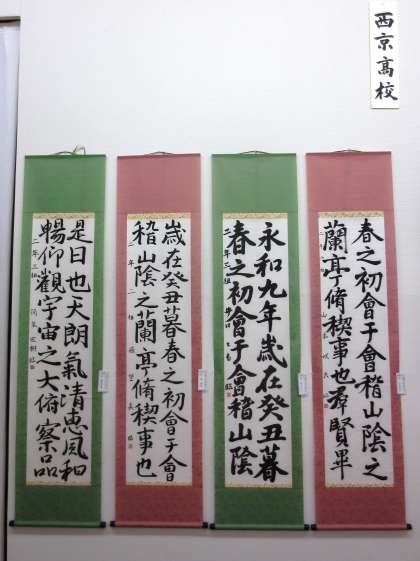 西京高校
春之初會于會稽山陰之
蘭亭脩稧事也羣賢畢
永和九年歲在癸丑暮
春之初會于會稽山陰
二年三組
臨
歲在癸丑暮春之初會于會
稽山陰之蘭亭脩稧事也
臨
是日也天朗氣清惠風和
暢仰觀宇宙之大俯察品
二年三組
臨